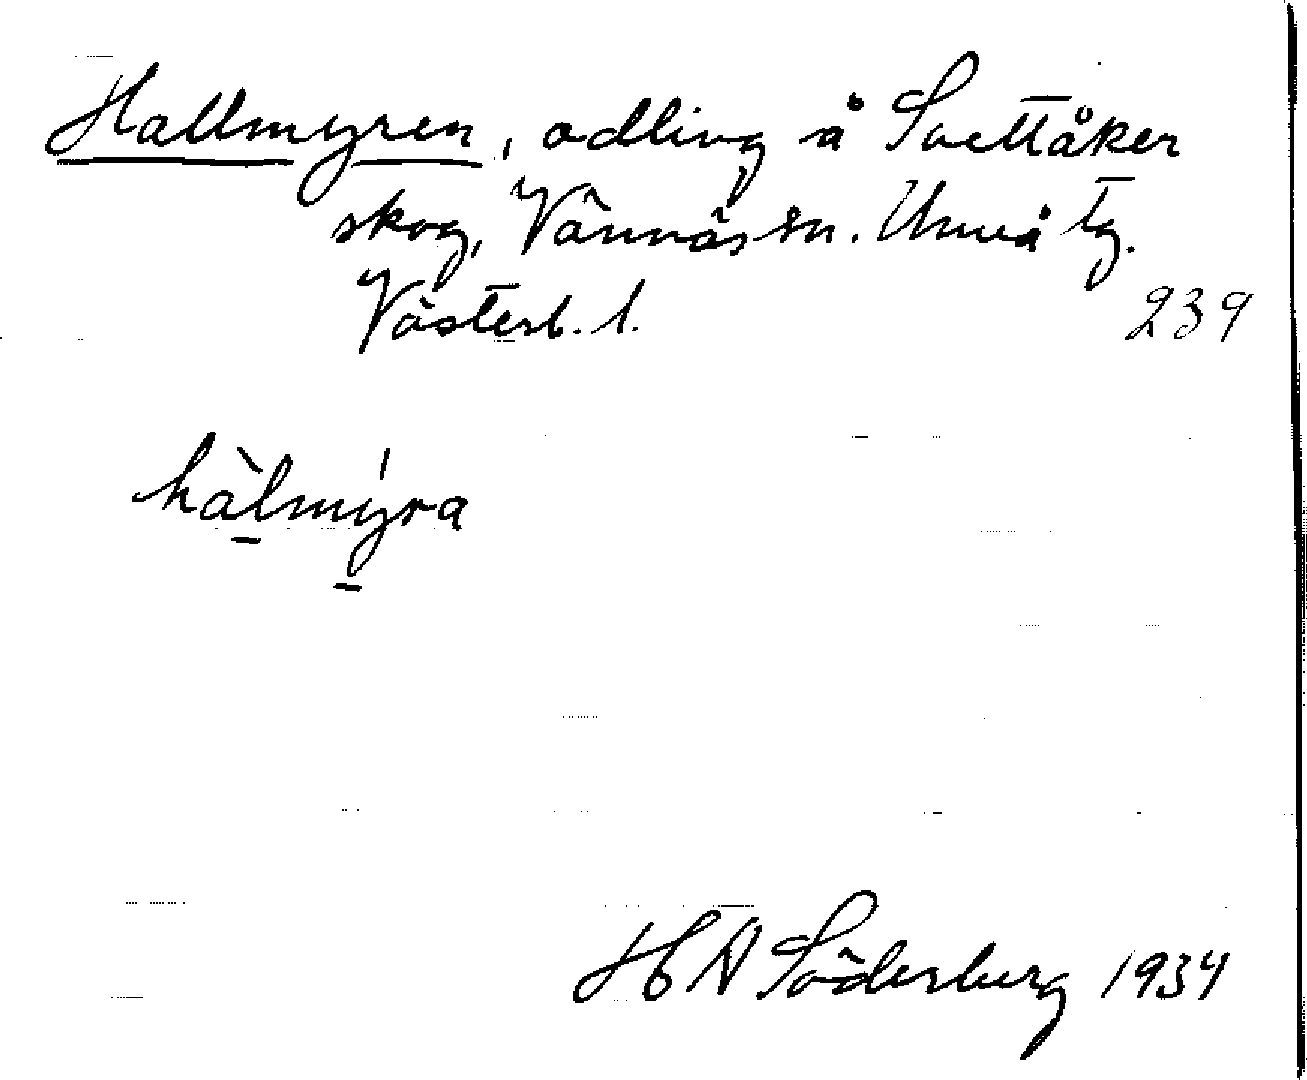 Hallmyren, odling å Svettåker
skog, Vännäs sn. Umeå tg.
Västerb. l.
239
hàlmýra
H A Söderberg 1934